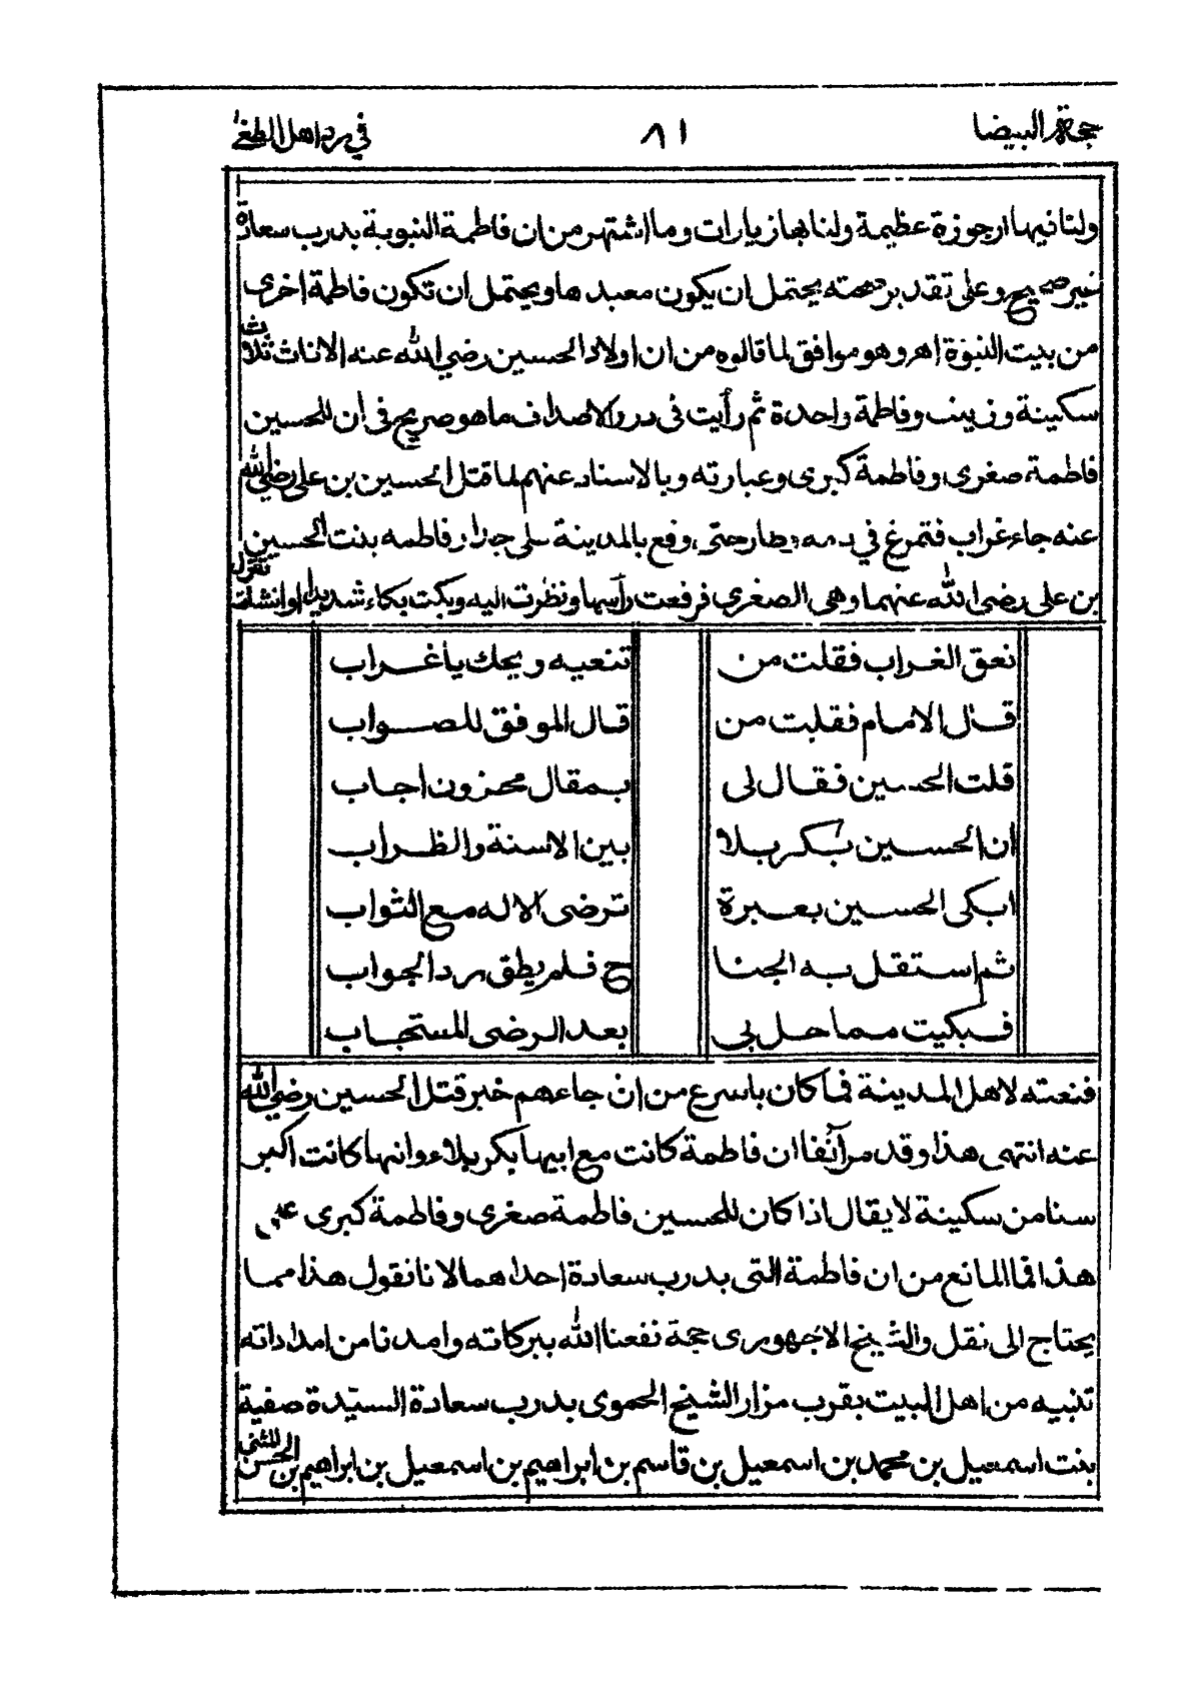 حجة البيضا ٨١ في رد اهل الطغا
ولنا فيها ارجوزة عظيمة ولنا بها زيارات وما اشتهر من ان فاطمة النبوية بدرب سعادة
غير صحيح وعلى تقدير صحته يحتمل ان يكون معبدها ويحتمل ان تكون فاطمة اخرى
من بيت النبوة اهـ وهو موافق لما قالوه من ان اولاد الحسين رضي الله عنه الاناث ثلاث
سكينة وزينب وفاطمة واحدة ثم رأيت في درر الاصداف ما هو صريح في ان للحسين
فاطمة صغرى وفاطمة كبرى وعبارته وبالاسناد عنهم لما قتل الحسين بن علي رضي الله
عنه جاء غراب فتمرغ في دمه وطار حتى وقع بالمدينة على جدار فاطمه بنت الحسين
بن على رضى الله عنهما وهى الصغرى فرفعت رأسها ونظرت اليه وبكت بكاء شديدا وانشات تقول
نعق الغراب فقلت من تنعيه ويحك يا غراب
قال الامام فقلت من قال الموفق للصواب
قلت الحسين فقال لى بمقال محزون اجاب
ان الحسين بكربلا بين الاسنة والظراب
ابكى الحسين بعبرة ترضى الاله مع الثواب
ثم استقل به الجنا ح فلم يطق رد الجواب
فبكيت مما حل بى بعد الرضى المستجاب
فنعته لاهل المدينة فما كان باسرع من ان جاءهم خبر قتل الحسين رضي الله
عنه انتهى هذا وقد مر آنفا ان فاطمة كانت مع ابيها بكربلاء وانها كانت اكبر
سنا من سكينة لا يقال اذا كان للحسين فاطمة صغرى وفاطمة كبرى على
هذا فما المانع من ان فاطمة التى بدرب سعادة احداهما لانا نقول هذا مما
يحتاج الى نقل والشيخ الاجهورى حجة نفعنا الله ببركاته وامدنا من امداداته
تنبيه من اهل البيت بقرب مزار الشيخ الحموى بدرب سعادة السيّدة صفية
بنت اسمعيل بن محمد بن اسمعيل بن قاسم بن ابراهيم بن اسمعيل بن ابراهيم بن الحسن المثنى